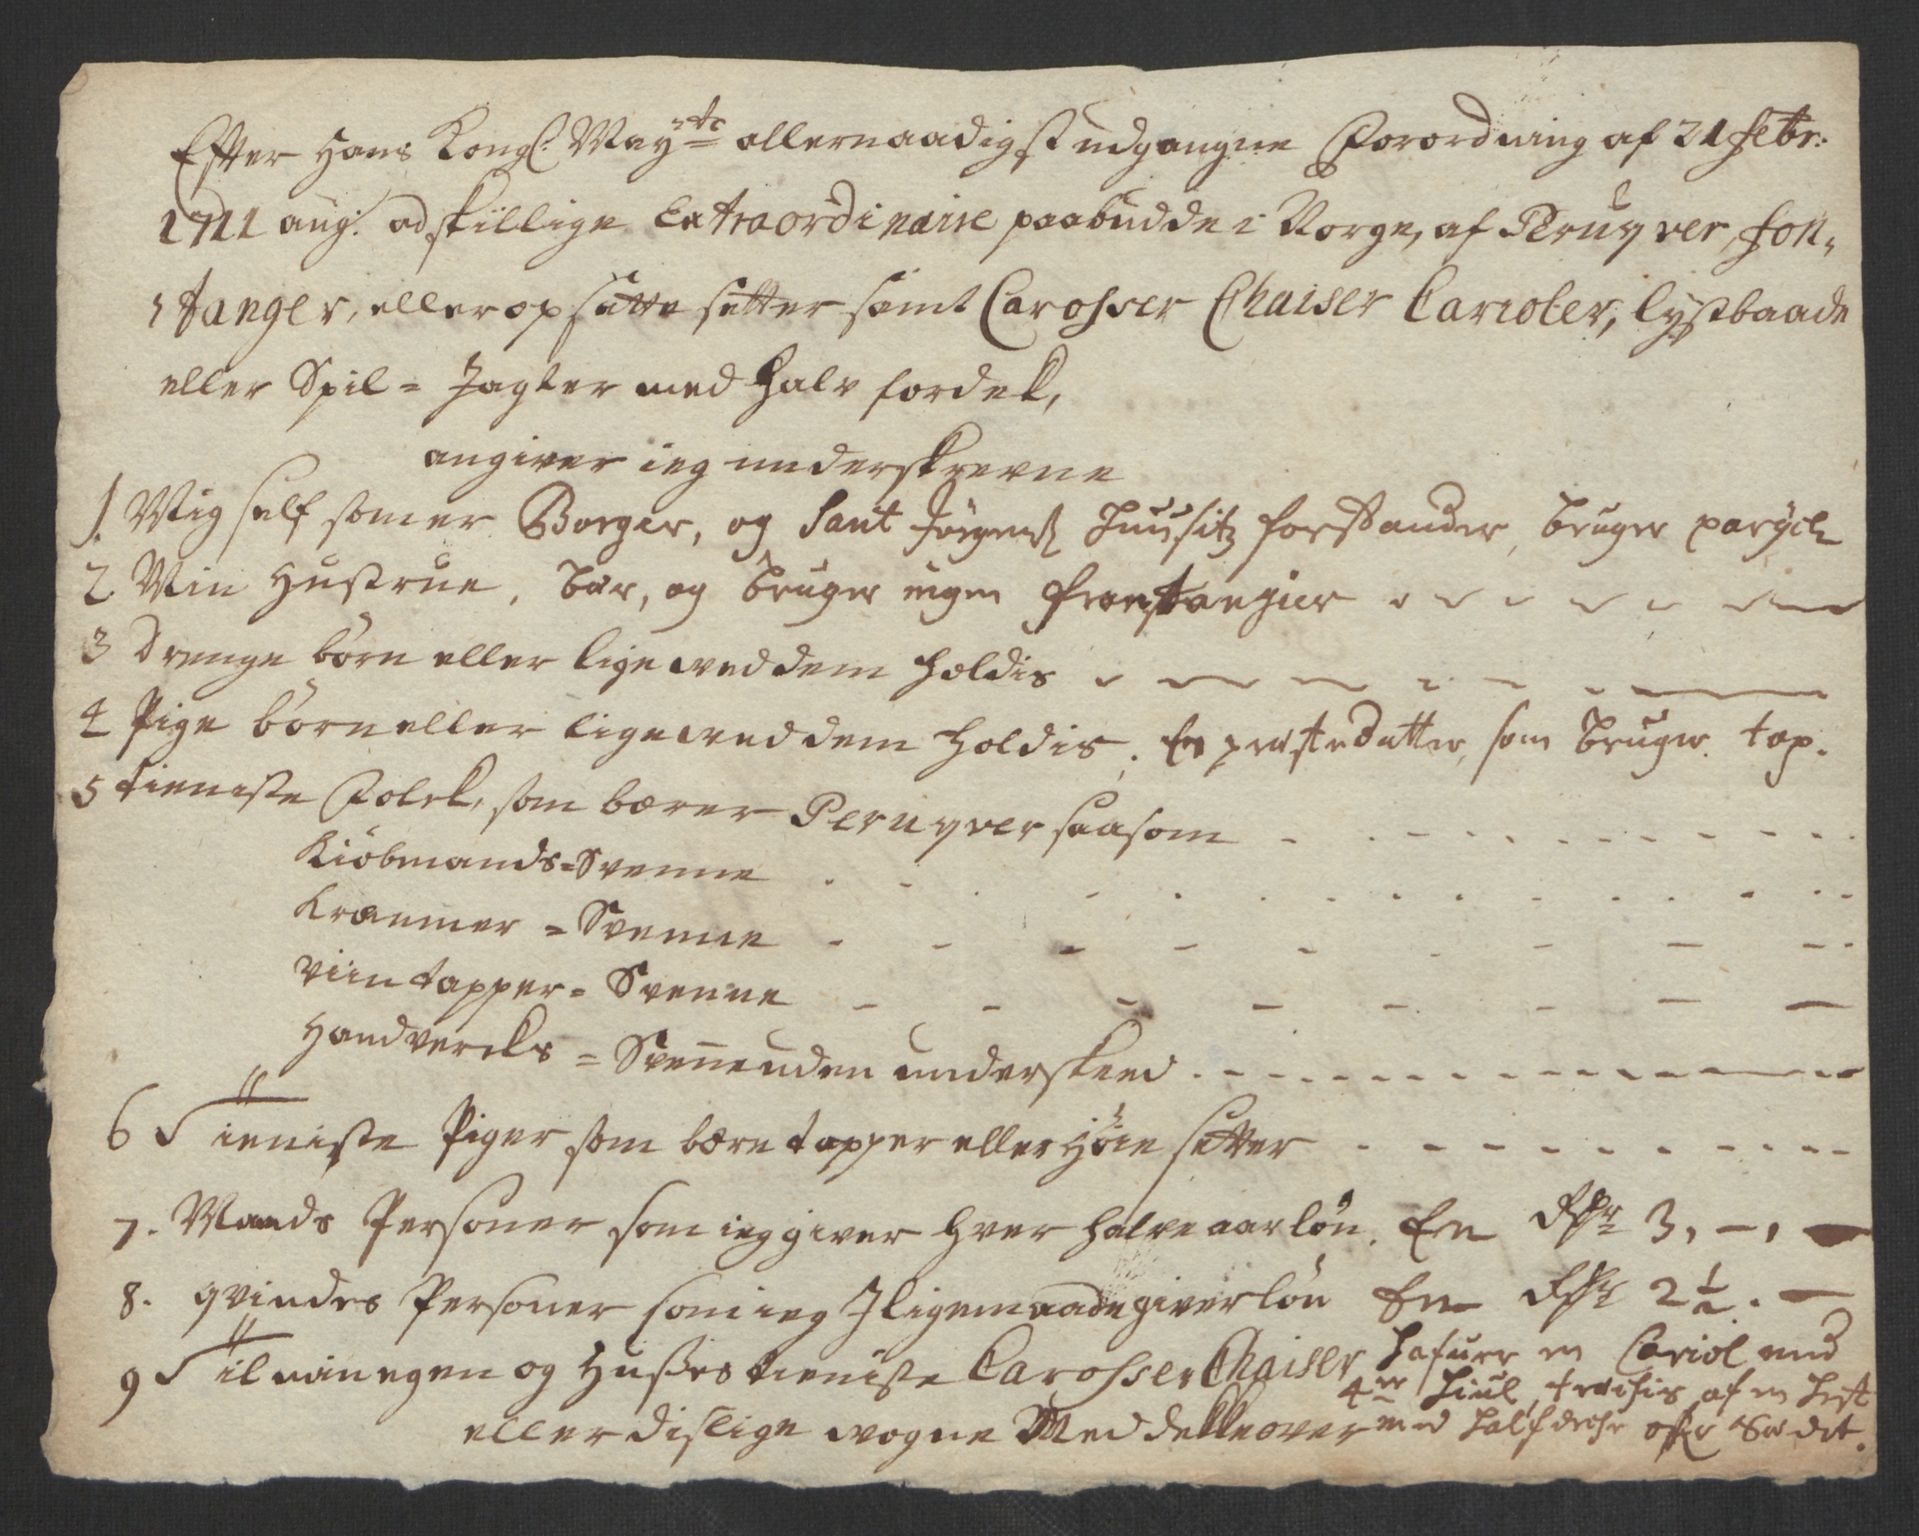 Efter Hans Kongl: May:tz allernaadigst udgangne Forordning af 21 Febr:
1711 ang: adskillige Extraordinaire paabudde i Norge, af Peruqver, fon-
tanger, eller opsatte setter samt Carosser Chaiser Carioler, lystbaade
eller Spil= Jagter med halv fordek,
angiver ieg underskrevne
1. Mig self som er Borger, og Sant Jörgens Huusitz forstander, bruger paryck
2 Min Hustrue, bær, og bruger ingen frontangier
3 Drenge börn eller lige ved dem holdis
4 Pige börn eller lige ved dem holdis. En præste datter, som bruger top.
5 tieniste Folck, som bærer Peruqver saasom
Kiöbmands=Svenne
Kræmmer =Svenne
Viintapper= Svenne
Handvercks =Svenne uden underskeed
6 Tieniste Piger som bære topper eller Höie setter
7. Mands Personer som ieg giver hver halve aar lön. En Rdr 3, –, –
8. qvindes Personer som ieg Jligemaade giver lön En Rdr 2 1/2. –
9 Til min egen og Husses tieniste Carosser Chaiser Hafuer en Cariol med
4re Hiul, af en Hest
eller dislige vogne Med dekke over med half ofr Sædet.